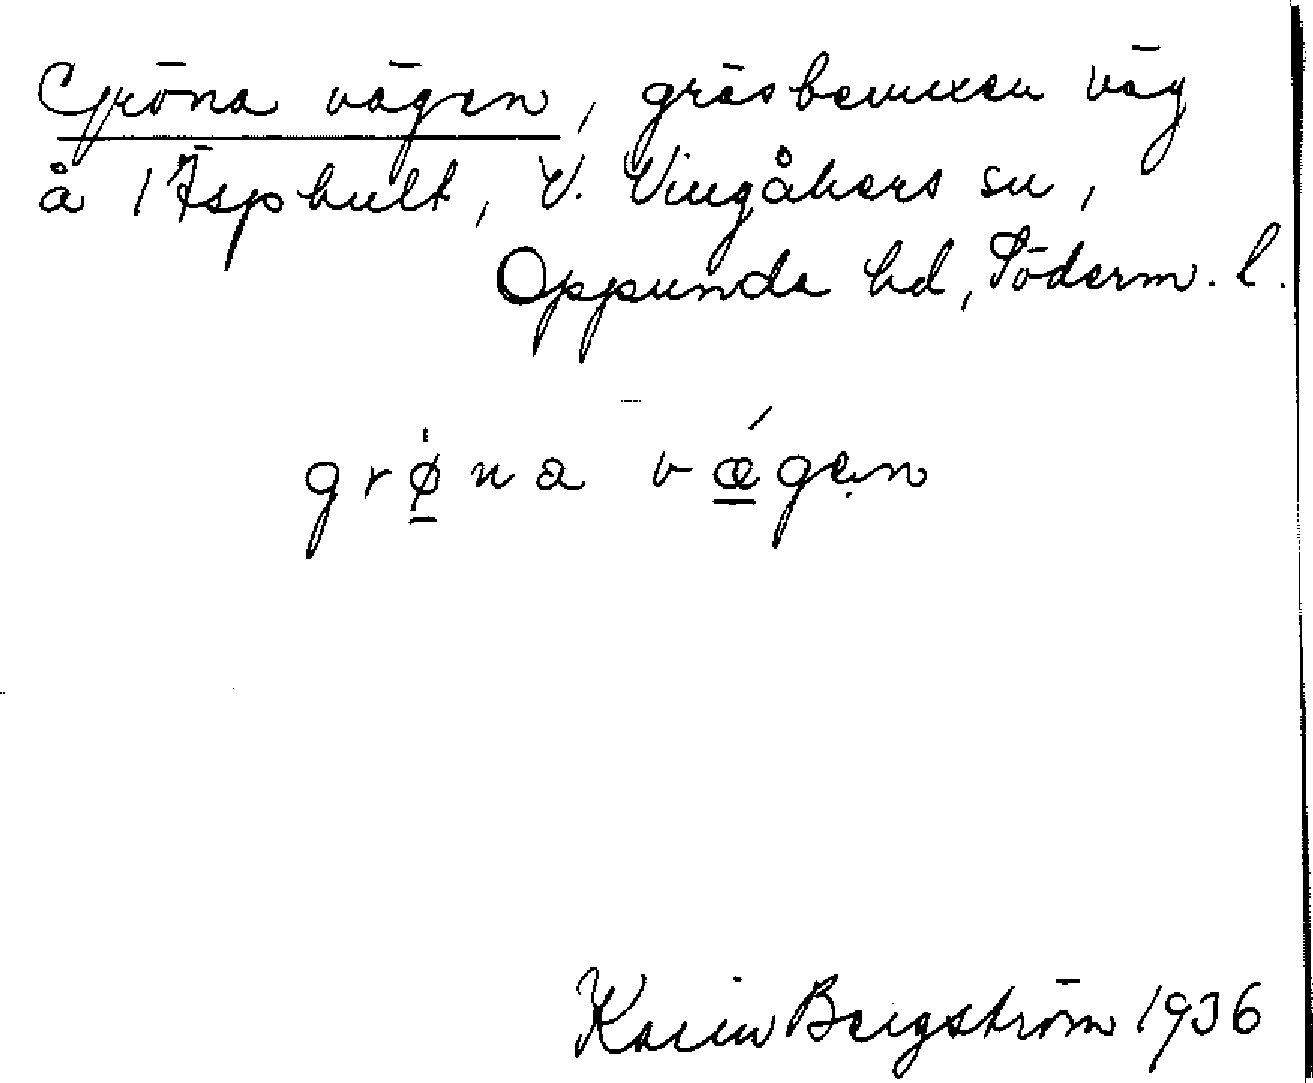 Gröna vägen, gräsbevuxen väg
å 1 Äsphult, V. Vingåkers sn,
Oppunda hd, Söderm. l.
grø̱̍na vǽ̱gẹn
Karin Bergström 1936